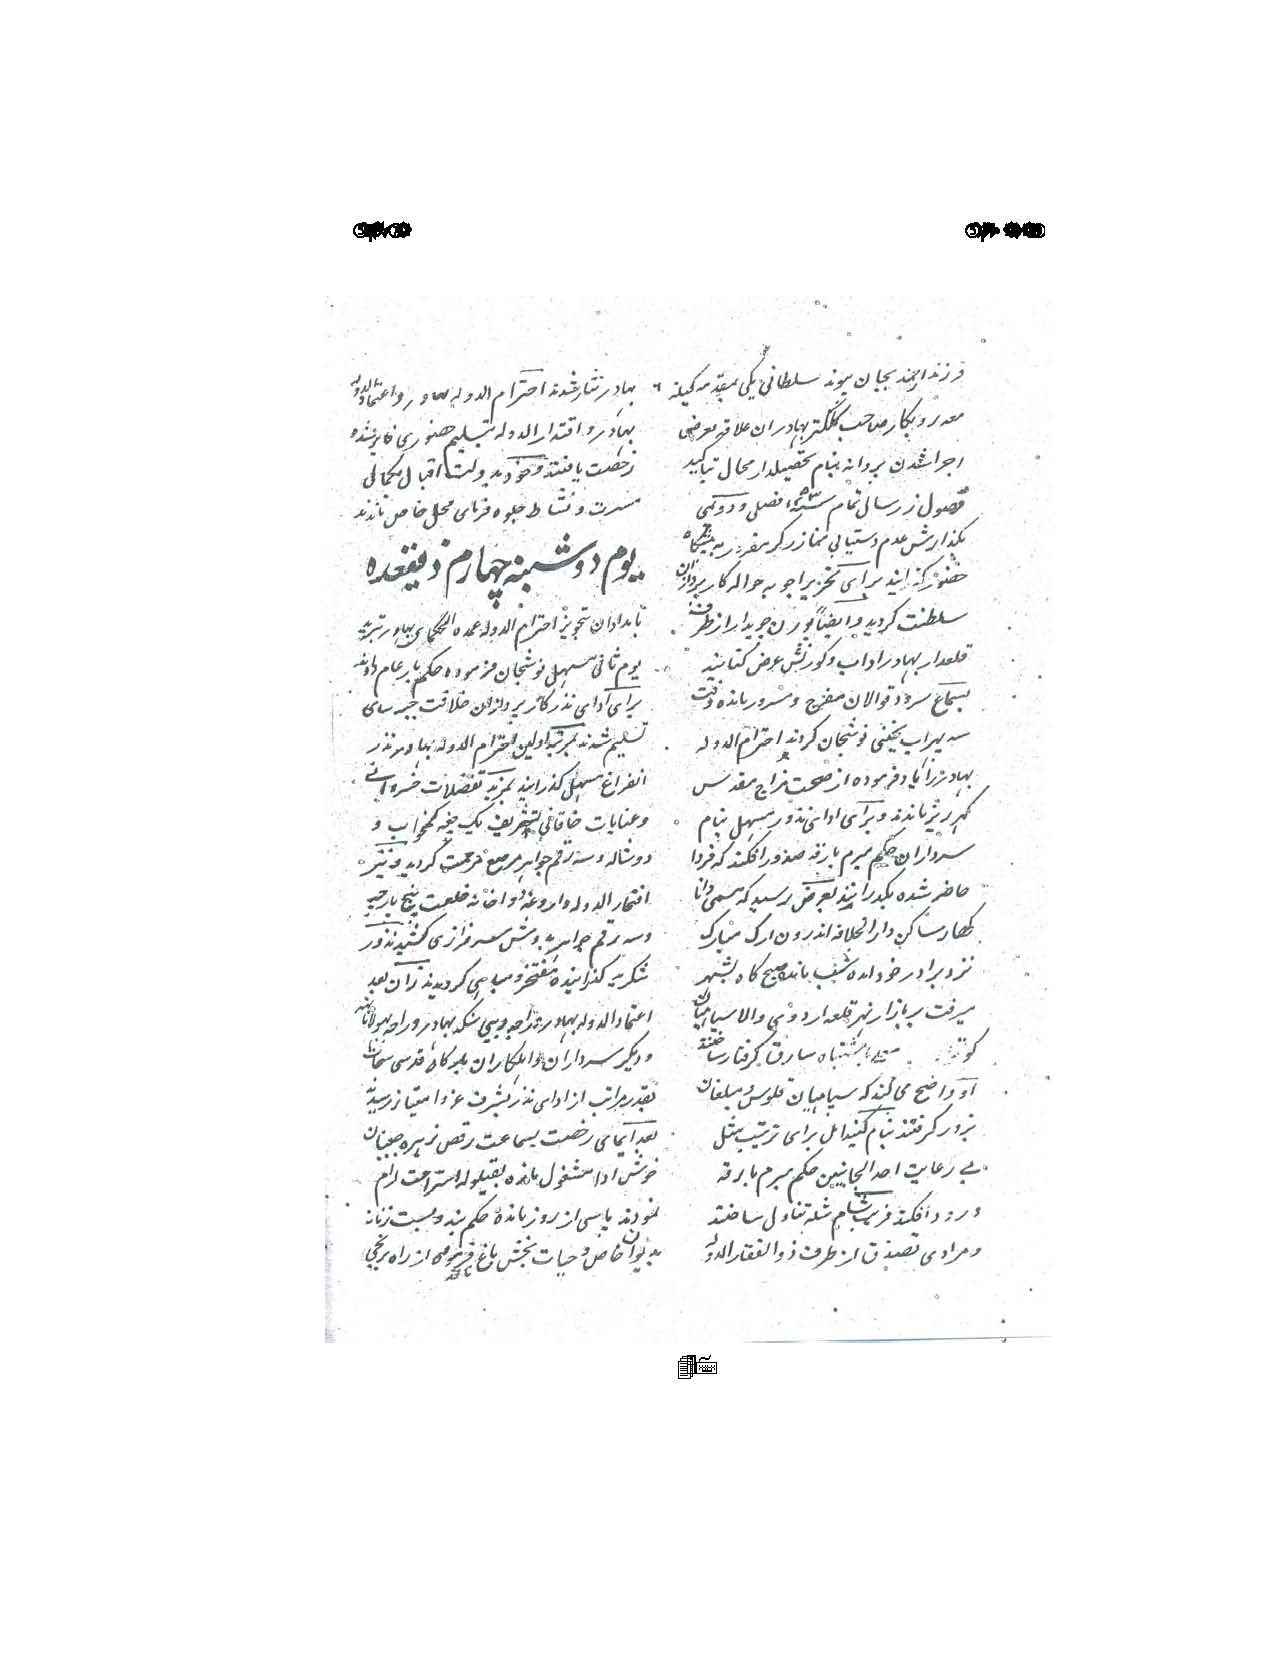 فرزند ارجمند بجان پیوند سلطانی یکی بمقدمه
معه روبکار صاحب کلکتر بهادر ان علاقه معرضی
اجرا شدن پروانه بنام تحصیلدار محال بتاکید
وصول زر رسال تمام فصلی و دومی
بگذارش عدم دستیابی
حضور گذرانید برای تحریر اجوبه حواله کارپردازان
سلطنت گردید و ایضاً چوبدار از طرف
قلعدار بهادر اداب و کورنش عرض کنانید
بسماع سرود قوالان مفرح و مسرور مانده وقت
سه پهر اب یخنی نوشجان کردند احترام الدوله
بهادر را یاد فرموده از صحت مزاج مقدس
گهر ریز ماندند و برای ادای نذور مسهل بنام
سرداران حکم مبرم بارقه صدور افگند که فردا
حاضر شده بگذرانند بعرض رسید که مسمی دانا
کهار ساکن دار الخلافه اندرون ارک مبارک
نزد برادر خود امده شب مانده صبح گاه بشهر
میرفت بر بازار نهر قلعه اردوی والا سپاهیان
باشتباه سارق گرفتار ساختند
واضح میکند که سپاهیان فلوس و مبلغان
بزور گرفتند بنام کنیدانل برای ترتیب مثل
بے رعایت احد الجانبین حکم مبرم بارقه
ورود افگند قریب شام شله تناول ساختند
و مرادی تصدق از طرف ذوالفقار الدوله
بهادر نثار شدند احترام الدوله بهادر و اعتماد الدوله
بهادر و اقتدار الدوله بتسلیم حضوری فایز شده
رخصت یافتند و خود بدولت اقبال بکمالی
مسرت و نشاط جلوه فرمای محل خاص ماندند
یوم دوشنبه چهارم ذیقعده
بامدادان بتجویز احترام الدوله عمدة الحکمای بهادر تبرید
یوم ثانی مسهل نوشجان فرموده حکم بار عام دادند
برای ادای نذر کارپردازان خلافت جبه سای
تسلیم شدند بمرتبه اولین احترام الدوله بهادر نذر
انفراغ مسهل گذرانید بمزید تفضلات خسروانے
و عنایات خاقانی بتشریف یک جیغه کمخواب و
دوشاله و سه رقم جواهر مرصع مرحمت گردید و نیز
افتخار الدوله داروغه دواخانه خلعت پنج پارچه
و سه رقم جواهر بدوش سرفرازی کشیدند نذور
شکریه گذرانیده مفتخر و مباهی گردیدند زان بعد
اعتماد الدوله بهادر و راجه دیبی سنگه بهادر و راجه بهولاناتهه
و دیگر سرداران و اهلکاران ببارگاه قدسی
بقدر مراتب از ادای نذر بشرف عز و امتیاز رسیدند
بعد ایمای رخصت بسماعت رقص زهره جبینان
خوش ادا مشغول مانده بقیلوله استراحت ارام
نمودند پاسی از روز مانده حکم بندوبست زنانه
بدیوان خاص و حیات بخش باغ فرموده از راه برجی
تا قلعه